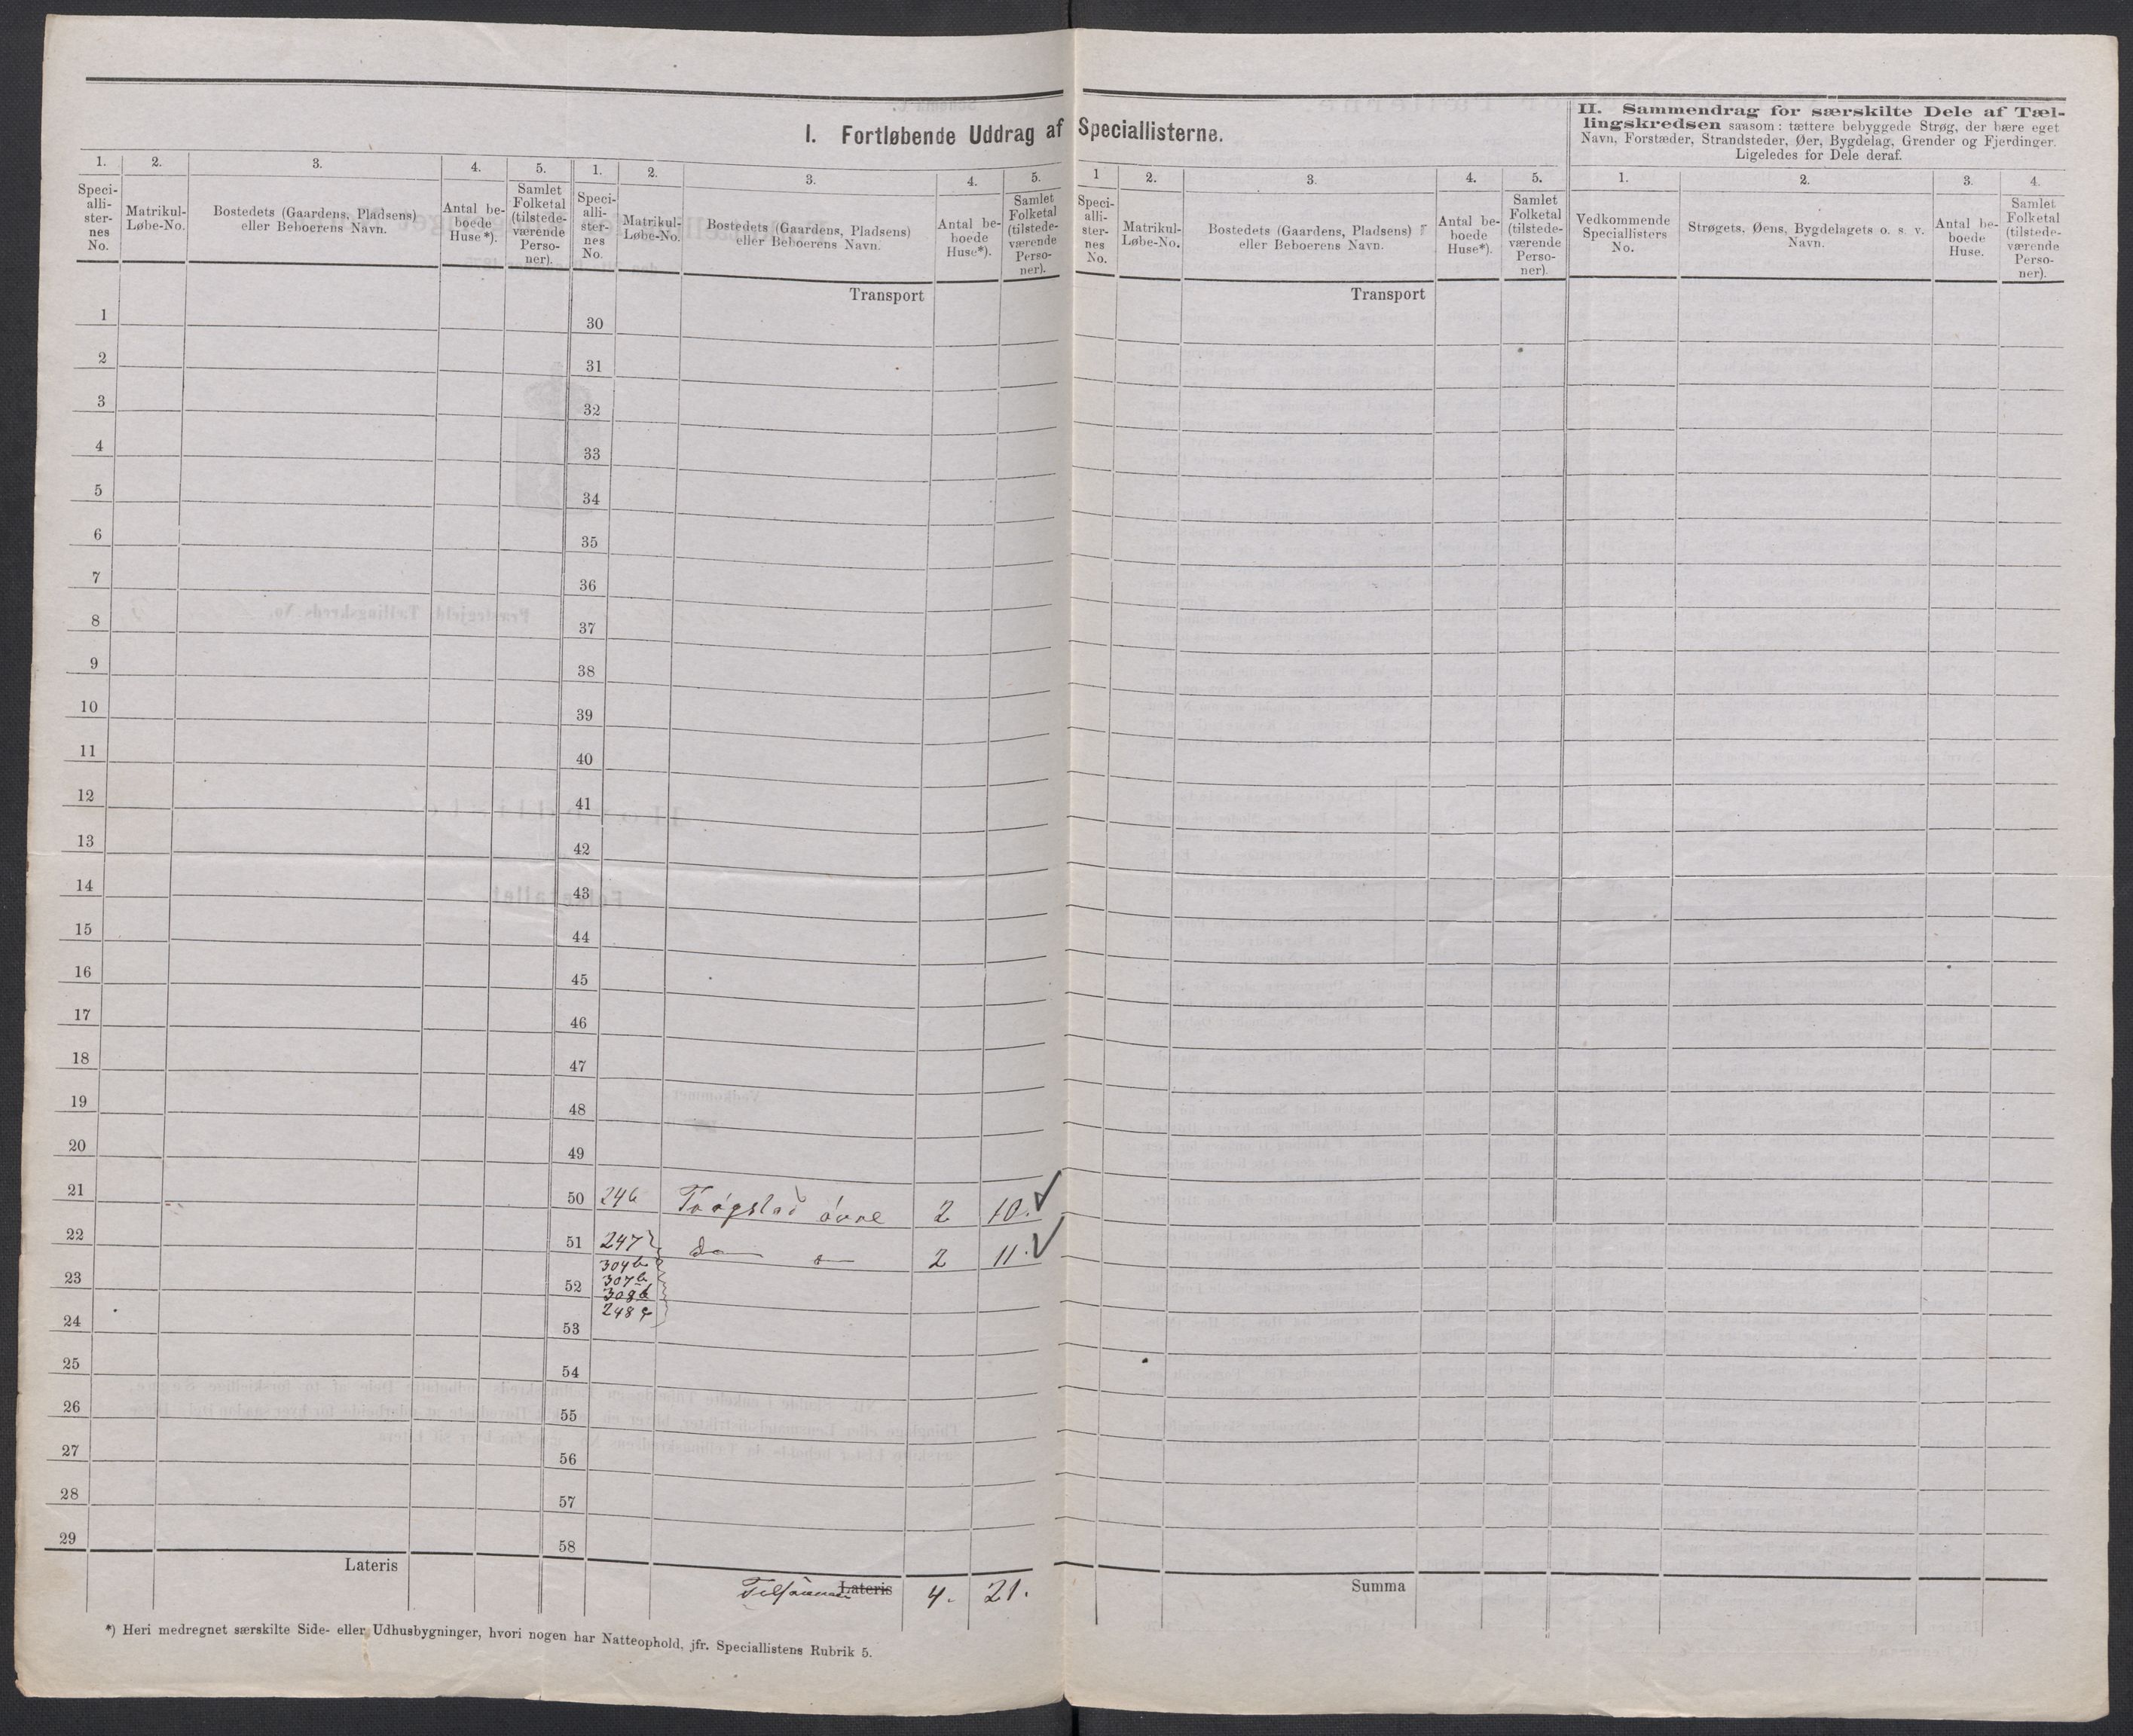 I. Fortløbende Uddrag af Speciallisterne.
1. 2. 3. 4. 5.
Speci-
alli-
ster-
nes
No.
Matrikul-
Løbe-No.
Bostedets (Gaardens, Pladsens)
eller Beboerens Navn.
Antal be-
boede
Huse*).
Samlet
Folketal
(tilstede-
værende
Perso-
ner).
1
2
3
4
5
6
7
8
9
10
11
12
13
14
15
16
17
18
19
20
21
22
23
24
25
26
27
28
29
Lateris
1. 2. 3. 4. 5.
Speci-
alli-
ster-
nes
No.
Matrikul-
Løbe-No.
Bostedets (Gaardens, Pladsens)
eller Beboerens Navn.
Antal be-
boede
Huse*).
Samlet
Folketal
(tilstede-
værende
Perso-
ner).
Transport
30
31
32
33
34
35
36
37
38
39
40
41
42
43
44
45
46
47
48
49
50 246 Trøgstad øvre 2 10.
51 247 do 2 11.
304b
52 307b
308b
248
53
54
55
56
57
58
Lateris 4. 21.
*) Heri medregnet særskilte Side- eller Udhusbygninger, hvori nogen har Natteophold, jfr. Speciallistens Rubrik 5.
1 2. 3. 4. 5.
Speci-
alli-
ster-
nes
No.
Matrikul-
Løbe-No.
Bostedets (Gaardens, Pladsens)
eller Beboerens Navn.
Antal be-
boede
Huse*).
Samlet
Folketal
(tilstede-
værende
Perso-
ner).
Transport
Summa
II. Sammendrag for særskilte Dele af Tæl-
lingskredsen saasom: tættere bebyggede Strøg, der bære eget
Navn, Forstæder, Strandsteder, Øer, Bygdelag, Grender og Fjerdinger.
Ligeledes for Dele deraf.
1. 2. 3. 4.
Vedkommende
Speciallisters
No.
Strøgets, Øens, Bygdelagets o. s. v.
Navn.
Antal be-
boede
Huse.
Samlet
Folketal
(tilstede-
værende
Perso-
ner).